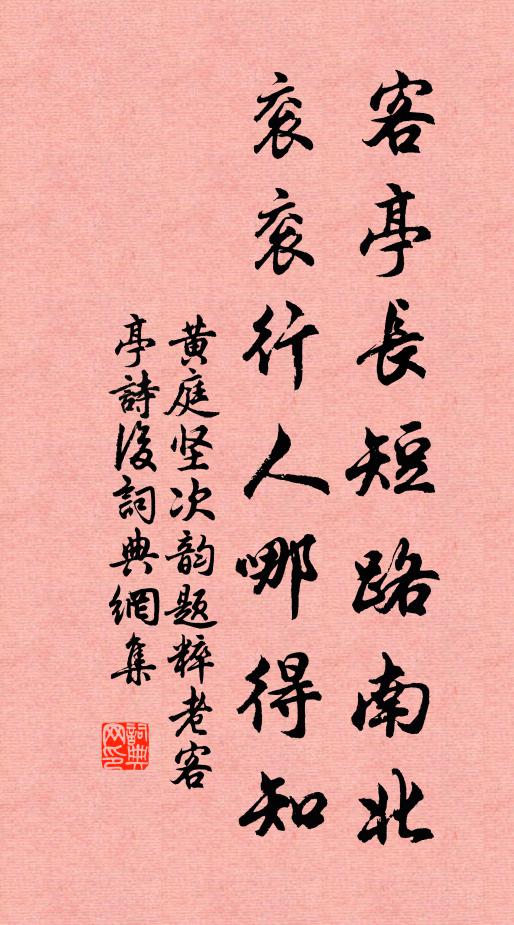 客亭長短路南北
衮衮行人哪得知
黄庭坚次韵题粹老客
亭詩後詞典網集
詞典
网印